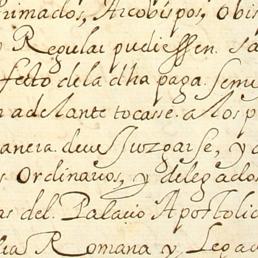 Primados, Arcobispos, Obis
Regular pudiessen. sa
fecto de la dha paga. se mu
adelante tocasse. a los p
anera deve Juzgarse, y a
s Ordinarios, y delegados
as del. Palacio Apostolic
Romana y, Legac